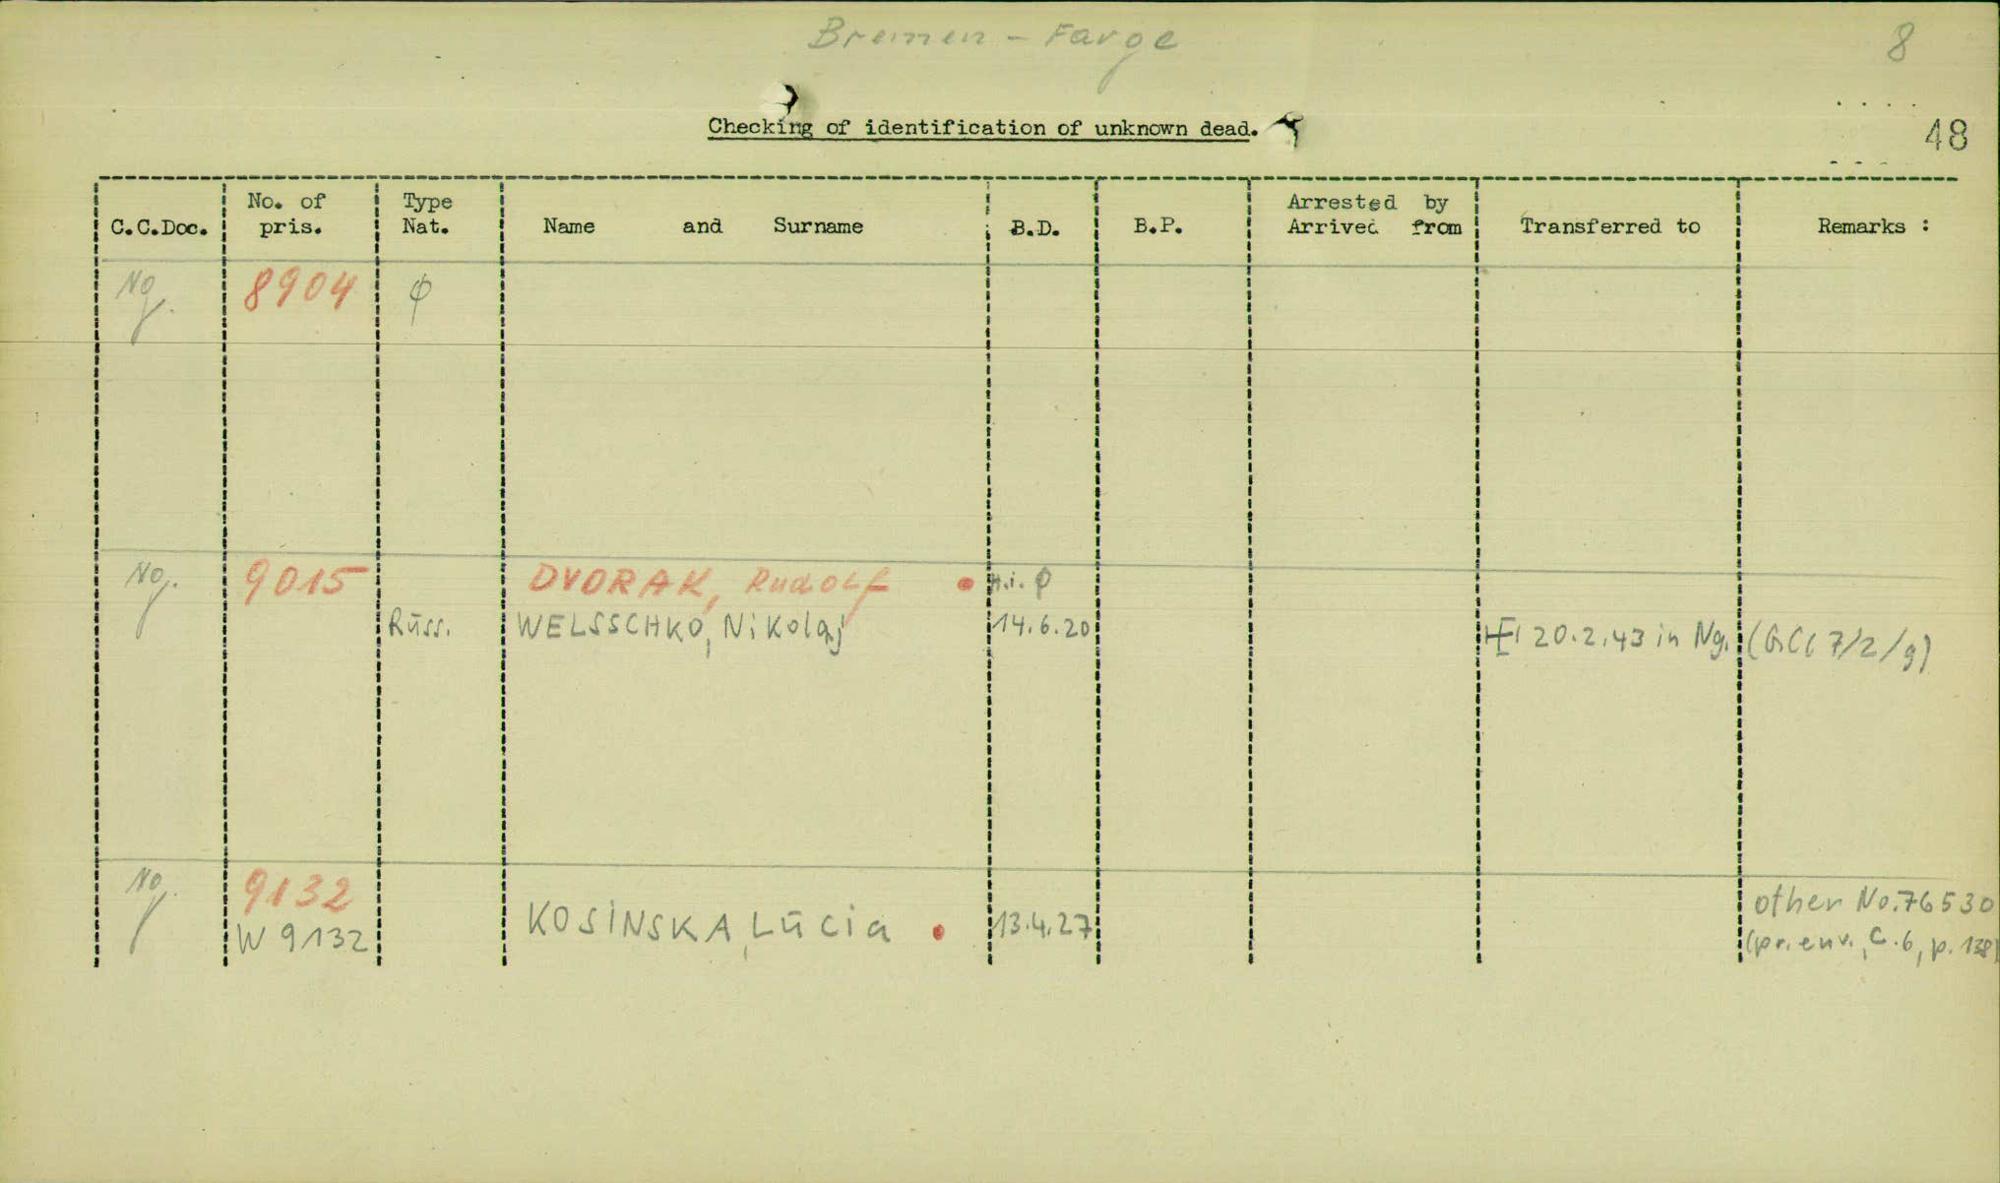 Bremen - Farge
8
Checking of identification of unknown dead.
48
C.C.Doc. No. of pris. Type Nat. Name and Surname B.D. B.P. Arrested by Arrived from Transferred to Remarks :
Ng. 8904 φ
Ng. 9015 DVORAK, Rudolf • H.i. φ
Russ. WELSSCHKO, Nikolaj 14.6.20 20.2.43 in Ng. (GCC 7/2/g)
Ng. 9132 other No. 76530
W 9132 KOSINSKA, Lucia • 13.4.27 (pr. env., C.6, p. 138)